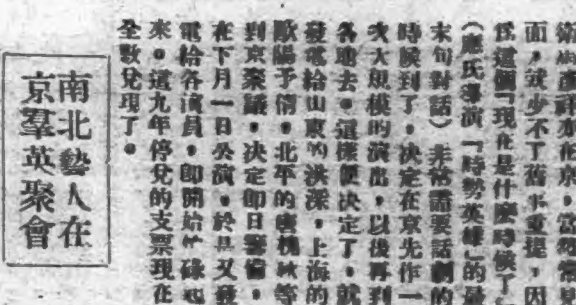 面，就少不了舊事重提，因
爲這個「現在是什麼時候了」
（應氏導演「時勢英雄」的最
末句對話）非常需要話劇的
時候到了，決定在京先作一
次大規模的演出，以後再到
各地去。這樣便決定了。就
發電給山東的洪深，上海的
歐陽予倩，北平的唐槐秋等
到京業議，決定卽日籌備，
在下月一日公演。於是又發
電給各演員，卽開始忙碌起
來。這九年停兌的支票現在
全數兌現了。
南北藝人在
京羣英聚會